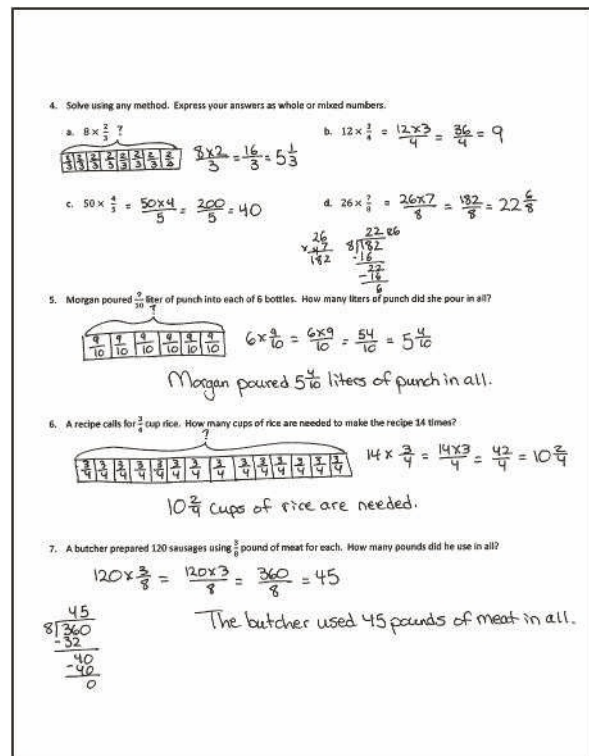 4. Solve using any method. Express your answers as whole or mixed numbers.
a. 8 × 2/3 ? b. 12 × 3/4 = 12×3/4 = 36/4 = 9
2/3 2/3 2/3 2/3 2/3 2/3 2/3 2/3 8×2/3 = 16/3 = 5 1/3
c. 50 × 4/5 = 50×4/5 = 200/5 = 40 d. 26 × 7/8 = 26×7/8 = 182/8 = 22 6/8
26
×7
182
22 R6
8)182
-16
22
-16
6
5. Morgan poured 9/10 liter of punch into each of 6 bottles. How many liters of punch did she pour in all?
?
9/10 9/10 9/10 9/10 9/10 9/10 6×9/10 = 6×9/10 = 54/10 = 5 4/10
Morgan poured 5 4/10 liters of punch in all.
6. A recipe calls for 3/4 cup rice. How many cups of rice are needed to make the recipe 14 times?
?
3/4 3/4 3/4 3/4 3/4 3/4 3/4 3/4 3/4 3/4 3/4 3/4 3/4 3/4 14 × 3/4 = 14×3/4 = 42/4 = 10 2/4
10 2/4 cups of rice are needed.
7. A butcher prepared 120 sausages using 3/8 pound of meat for each. How many pounds did he use in all?
120×3/8 = 120×3/8 = 360/8 = 45
45
8)360
-32
40
-40
0
The butcher used 45 pounds of meat in all.